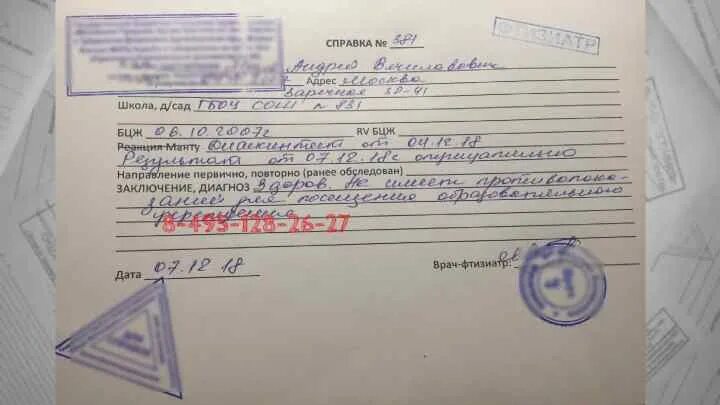 СПРАВКА № 381
ФТИЗИАТР
Андрей Вячеславович
Адрес Москва
Заречная 38-41
Школа, д/сад ГБОУ СОШ № 831
БЦЖ 06.10.2007г RV БЦЖ
Реакция Манту Диаскинтест от 04.12.18
Результат от 07.12.18г отрицательно
Направление первично, повторно (ранее обследован)
ЗАКЛЮЧЕНИЕ, ДИАГНОЗ Здоров. Не имеет противопока-
заний для посещения образовательного
учреждения
8-495-128-26-27
Дата 07.12 18
Врач-фтизиатр: